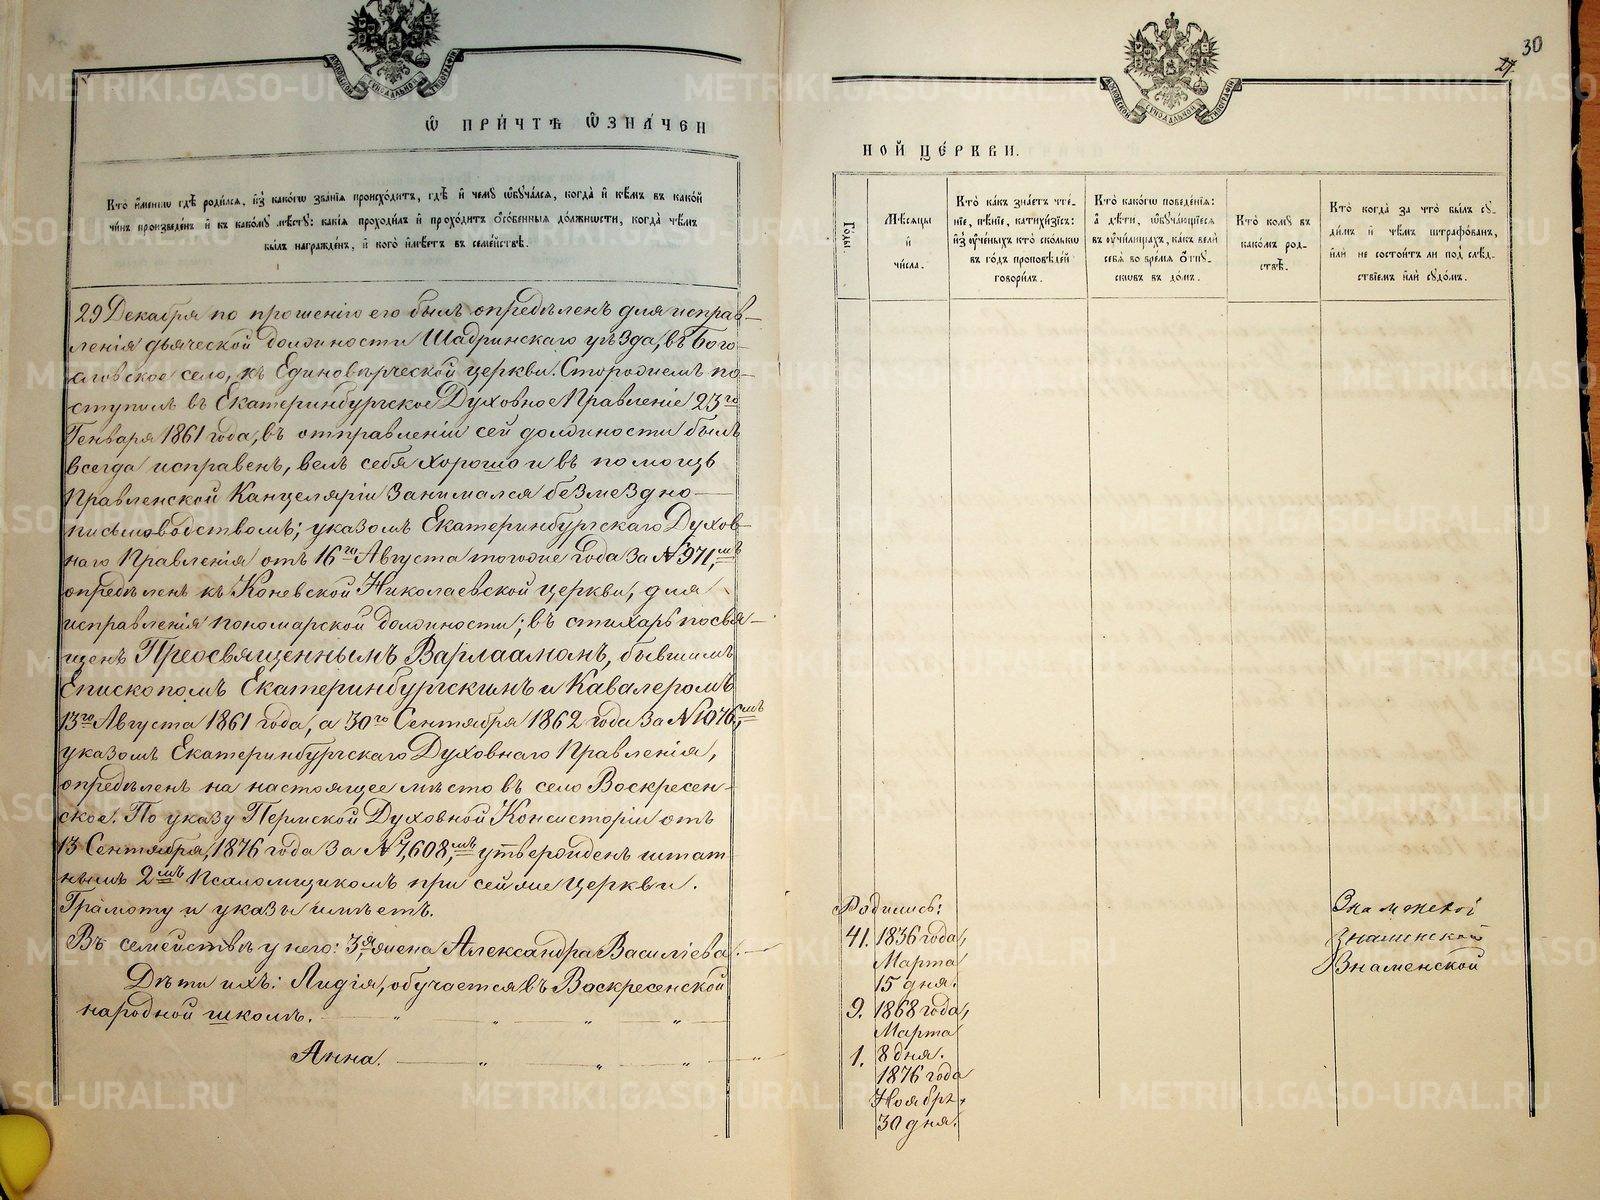 Ѿ ПРИЧТѢ ѾЗНАЧЕН
Кто именно гдѣ родился, изъ какогѡ званія происходитъ, гдѣ и чему ѡбучался, когда и кѣмъ въ какой
чинъ произведенъ и къ какому мѣсту: какія проходилъ и проходитъ особенныя должности, когда чѣмъ
былъ награжденъ, и кого имѣетъ въ семействѣ.
29 Декабря по прошенію его былъ опредѣленъ для исправ-
ленія дьяческой должности Шадринскаго уѣзда, въ Бого-
словское село, къ Единовѣрческой церкви. Сторожемъ по-
ступилъ въ Екатеринбургское Духовное Правленіе 23го
Генваря 1861 года, въ отправленіи сей должности былъ
всегда исправенъ, велъ себя хорошо и въ помощь
Правленской Канцеляріи занимался безмездно
письмоводствомъ; указомъ Екатеринбургскаго Духов-
наго Правленія отъ 16го Августа тогоже года за № 971,мъ
опредѣленъ къ Коневской Николаевской церкви, для
исправленія пономарской должности; въ стихарь посвя-
щенъ Преосвященнымъ Варлаамомъ, бывшимъ
Епископомъ Екатеринбургскимъ и Кавалеромъ
13го Августа 1861 года, а 30го Сентября 1862 года за № 1076,мъ
указомъ Екатеринбургскаго Духовнаго Правленія,
опредѣленъ на настоящее мѣсто въ село Воскресен-
ское. По указу Пермской Духовной Консисторіи отъ
13 Сентября, 1876 года за № 7,608,мъ утвержденъ штат-
нымъ 2мъ Псаломщикомъ при сей же Церкви.
Грамоту и указы имѣетъ.
Въ семействѣ у него: жена Александра Васильева.
Дѣти ихъ: Лидія, обучается въ Воскресенской
народной школѣ. „ „ „ „
Анна. „ „ „ „
27. 30
НОЙ ЦЕРКВИ.
Годы.
Мѣсяцы
и
числа.
Кто какъ знаетъ чте-
ніе, пѣніе, катихизісъ:
изъ ученыхъ кто сколько
въ годъ проповѣдей
говорилъ.
Кто какогѡ поведенія:
а дѣти, ѡбучающіеся
въ училищахъ, какъ вели
себя во время ѿпу-
сковъ въ домъ.
Кто кому въ
какомъ род-
ствѣ.
Кто когда за что былъ су-
димъ и чѣмъ штрафованъ,
или не состоитъ ли под слѣд-
ствіемъ или судомъ.
Родились:
41. 1836 года,
Марта
15 дня.
9. 1868 года,
Марта
1. 8 дня.
1876 года
Ноябр.
30 дня.
Знаменской